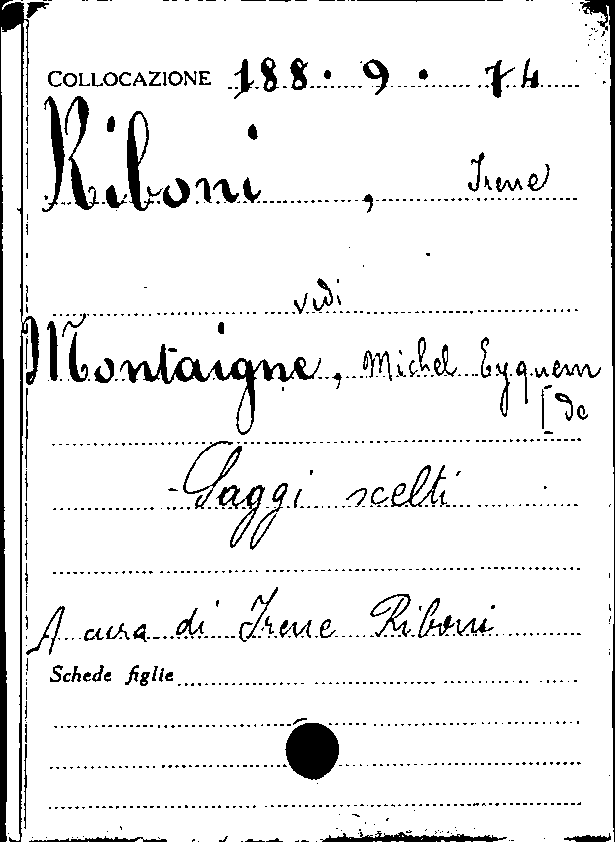 COLLOCAZIONE 188. 9. 74
Riboni, Irene
vedi
Montaigne, Michel Eyquem
[de
Saggi scelti
A cura di Irene Riboni
Schede figlie